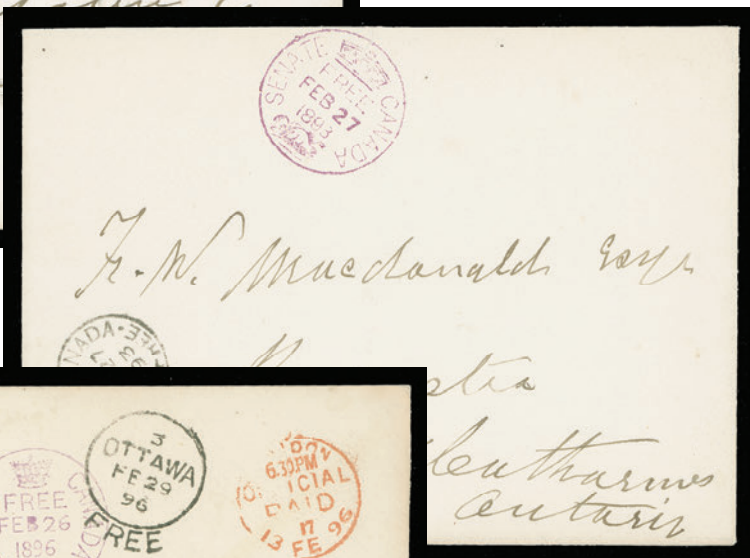 SENATE CANADA
FREE
FEB 27
1893
F. W. Macdonald Esqr
NADA · FREE
27
93
Catharines
Ontario
CANADA
FREE
FEB 26
1896
3
OTTAWA
FE 29
96
FREE
6.30PM
ICIAL
PAID
17
13 FE 96